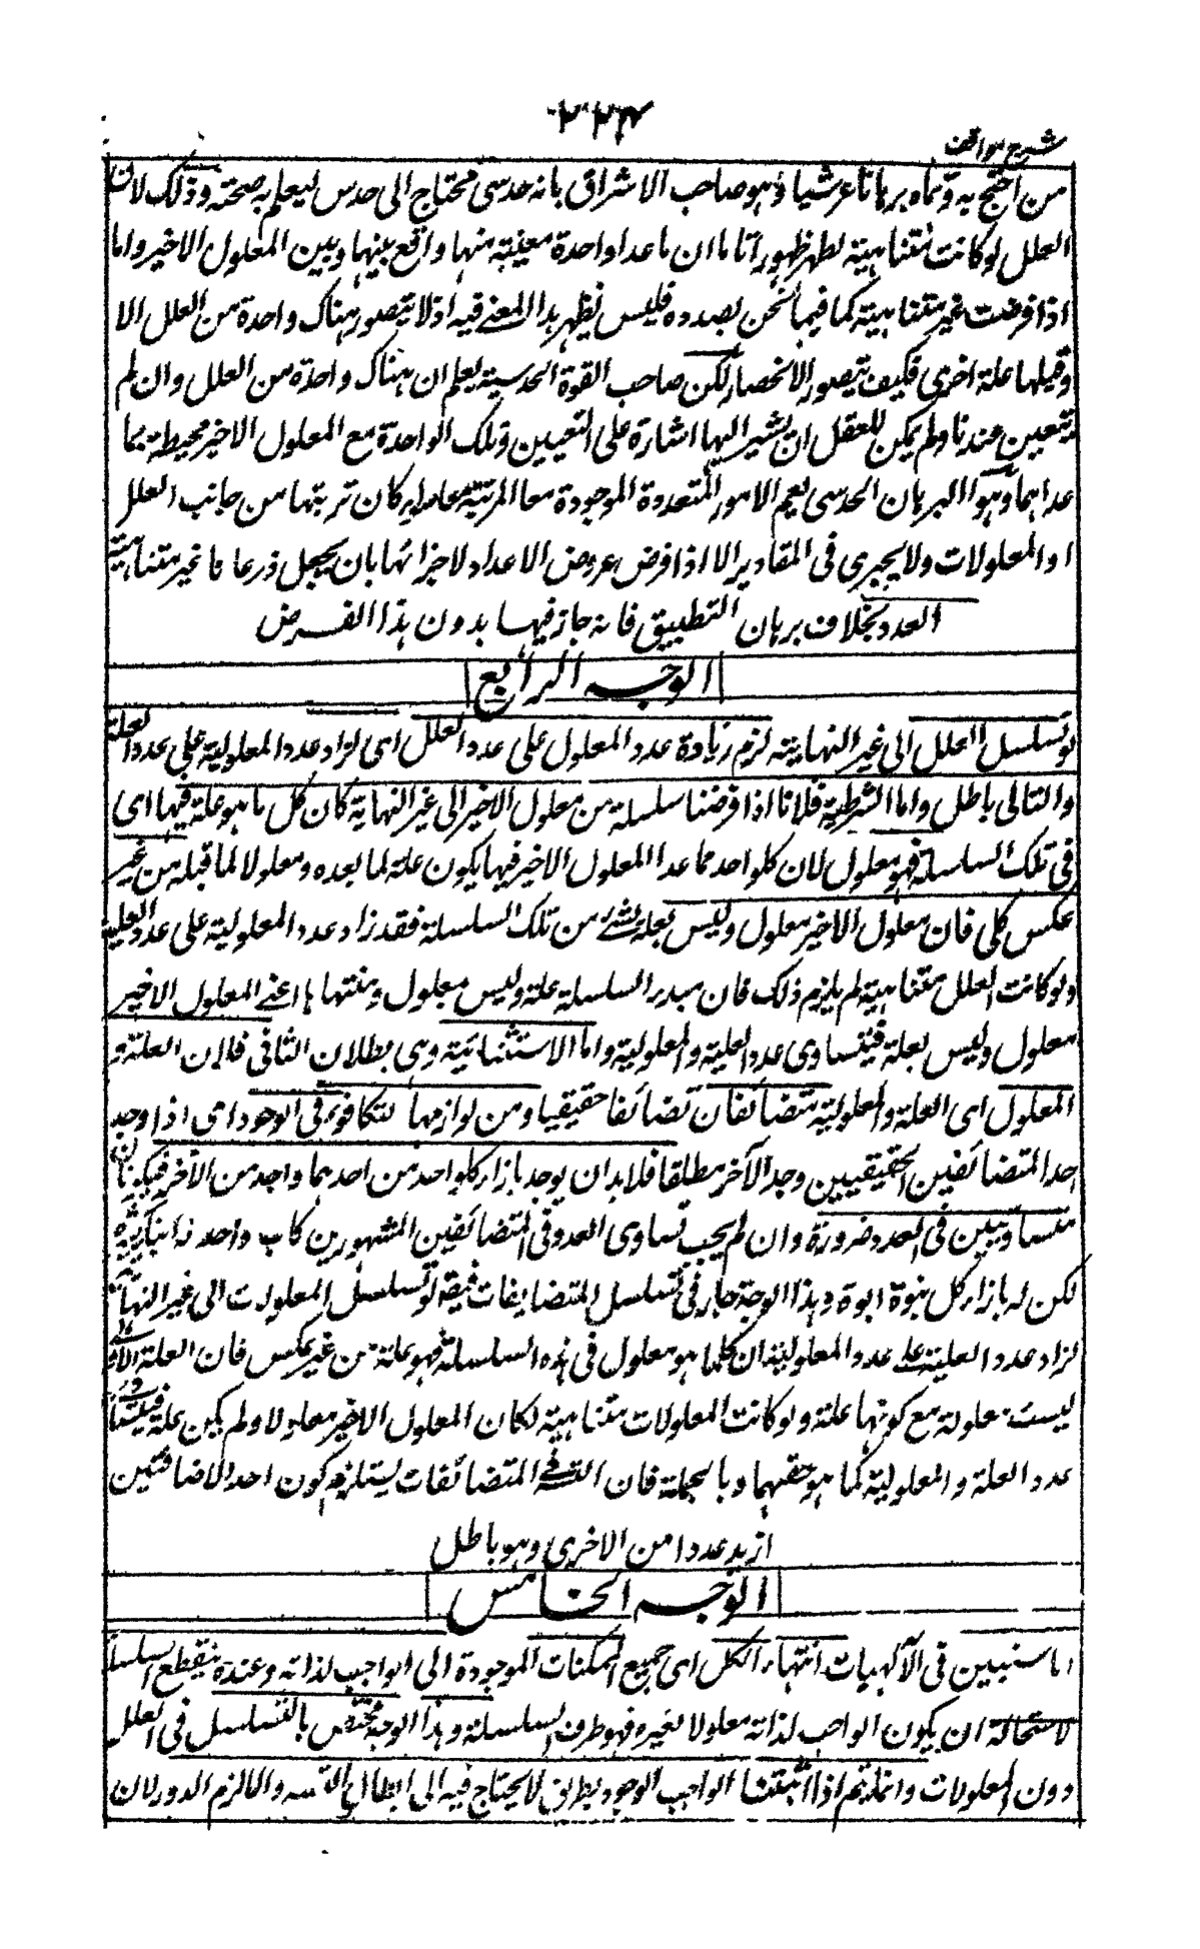 شرح مواقف
من احتج به وسماه برهانا عرشيا وهو صاحب الاشراق بانه حدسى محتاج الى حدس ليعلم به صحته وذلك لان
العلل لو كانت متناهية لظهر ظهورا تاما ان ما عدا واحدة معينة منها واقع بينها وبين المعلول الاخير واما
اذا فرضت غير متناهية كما فيما نحن بصدده فليس يظهر هذا المعنے فيه اذ لا يتصور هناك واحدة من العلل الا
وقبلها علة اخرى فكيف يتصور الانحصار لكن صاحب القوة الحدسية يعلم ان هناك واحدة من العلل وان لم
يتعين عندنا ولم يمكن للعقل ان يشير اليها اشارة على التعيين وتلك الواحدة مع المعلول الاخير محيطة بما
عداهما وهو البرهان الحدسى يعم الامور المتعددة الموجودة معا المرتبة سواء كان ترتبها من جانب العلل
او المعلولات ولا يجرى فى المقادير الا اذا فرض عروض الاعداد لاجزائها بان يجعل ذرعا ما غير متناهية
العدد بخلاف برهان التطبيق فانه جاز فيها بدون هذا الفرض
الوجه الرابع
لو تسلسل العلل الى غير النهاية لزم زيادة عدد المعلول على عدد العلل اى لزاد عدد المعلولية على عدد العلة
والتالى باطل واما الشرطية فلانا اذا فرضنا سلسلة من معلول الاخير الى غير النهاية كان كل ما هو علة فيها اى
فى تلك السلسلة فهو معلول لان كلواحد مما عدا المعلول الاخير فيها يكون علة لما بعده ومعلولا لما قبله من غير
عكس كلى فان معلول الاخير معلول وليس بعلة لشئ من تلك السلسلة فقد زاد عدد المعلولية على عدد العلية
ولو كانت العلل متناهية لم يلزم ذلك فان مبدء السلسلة علة وليس معلول ومنتهاها اعنے المعلول الاخير
معلول وليس بعلة فيتساوى عدد العلية والمعلولية واما الاستثنائية وهى بطلان الثانى فلان العلة و
المعلول اى العلة والمعلولية متضائفان تضائفا حقيقيا ومن لوازمها التكافو فى الوجود اى اذا وجد
احد المتضائفين الحقيقيين وجد الآخر مطلقا فلا بد ان يوجد بازاء كلواحد من احدهما واحد من الآخر فيكونان
متساويين فى العدد ضرورة وان لم يجب تساوى العدد فى المتضائفين المشهورين كاب واحد له ابناء كثيرة
لكن له بازاء كل بنوة ابوة وهذا الوجه جار فى تسلسل المتضايفات لو تسلسل المعلولات الى غير النهاية
لزاد عدد العلية على عدد المعلولية فان كلما هو معلول فى هذه السلسلة فهو علة من غير عكس فان العلة الاولى
ليست معلولة مع كونها علة ولو كانت المعلولات متناهية لكان المعلول الاخير معلولا ولم يكن علة فيتساوى
عدد العلة والمعلولية كما هو حقهما وبالجملة فان التسلسل فى المتضائفات يستلزم كون احد الاضافتين
ازيد عددا من الاخرى وهو باطل
الوجه الخامس
انا سنبين فى الآلهيات انتهاء الكل اى جميع الممكنات الموجودة الى الواجب لذاته وعنده ينقطع السلسلة
لاستحالة ان يكون الواجب لذاته معلولا لغيره فهو طرف السلسلة وهذا الوجه مختص بالتسلسل فى العلل
دون المعلولات وانما يتم اذا اثبتنا الواجب الوجود بطريق لا يحتاج فيه الى ابطال التسلسل والا لزم الدور لان